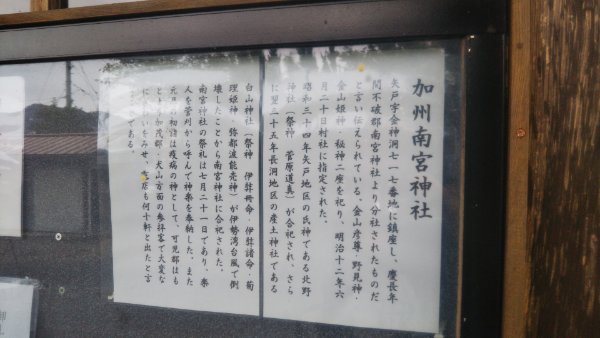 加州南宮神社
矢戸字金神洞七一七番地に鎮座し、慶長年
間不破郡南宮神社より分社されたものだ
と言い伝えられている。金山彦尊・野見神・
金山姫神・秘神二座を祀り、明治十二年六
月二十日村社に指定された。
昭和三十四年矢戸地区の氏神である北野
神社（祭神　菅原道真）が合祀され、さら
に翌三十五年長洞地区の産土神社である
白山神社（祭神　伊弉冊命・伊弉諸命・菊
理姫神・弥都波能売神）が伊勢湾台風で倒
壊したことから南宮神社に合祀された。
南宮神社の祭礼は七月二十一日であり、楽
人を菅刈から呼んで神楽を奉納した。また
元旦の初詣は疫病の神として、可児郡はも
とより加茂郡・犬山方面の参拝客で大変な
にぎわいをみせ、夜店も何十軒と出たと言
である。